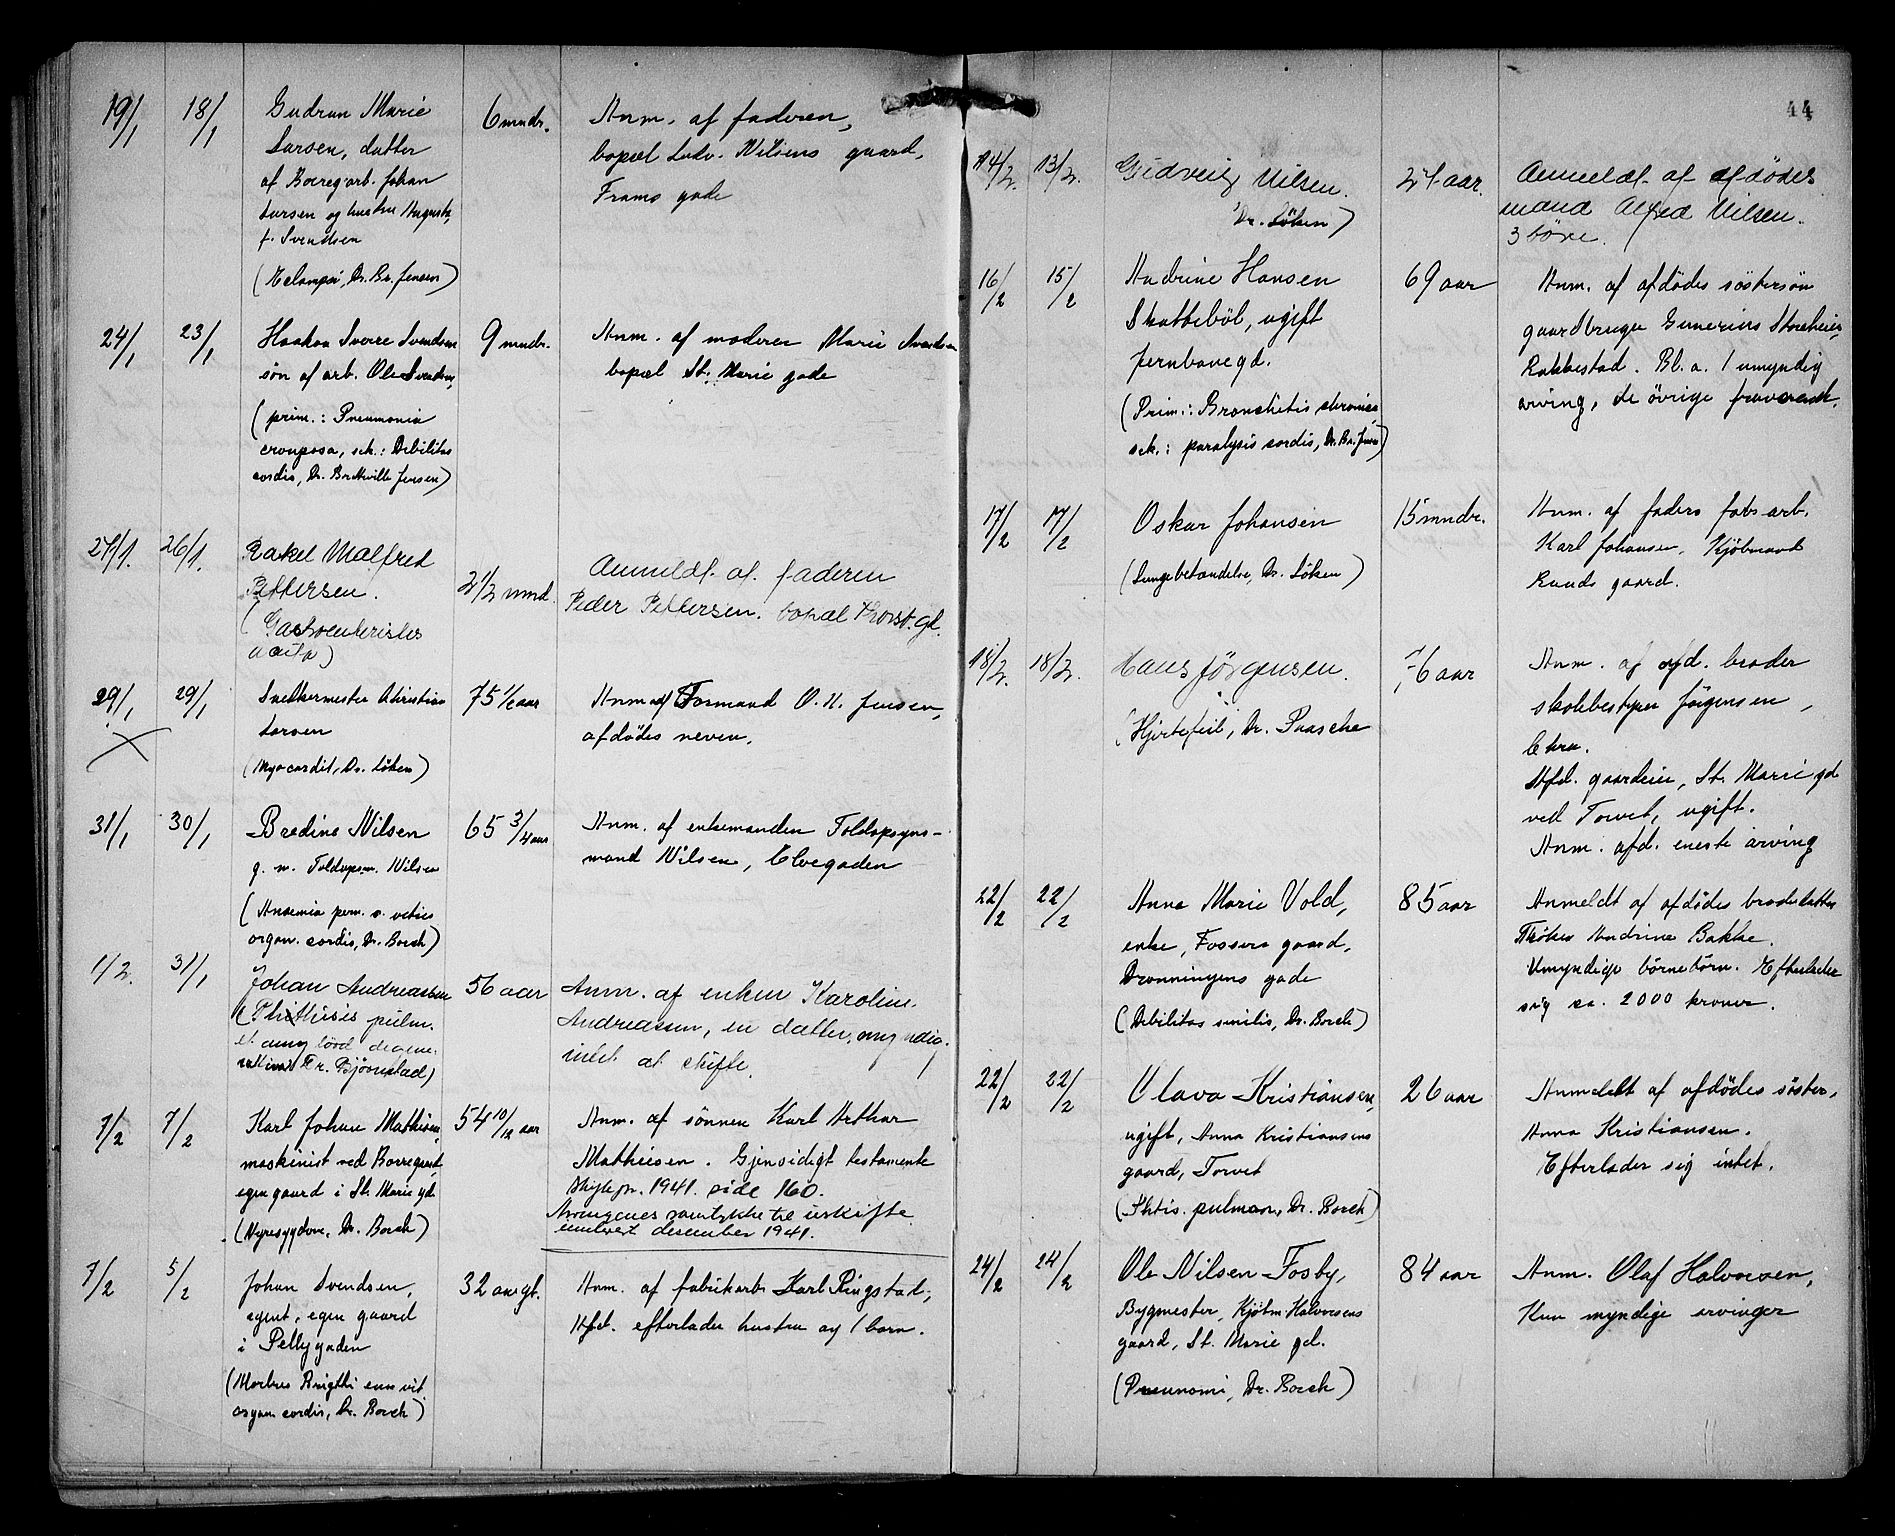 19/1 18/1 Gudrun Marie 6 mndr. Anm. af faderen,
Larsen, datter bopæl Ludv. Nilsens gaard,
af Borreg.arb. Johan Frams gade
Larsen og hustru Augusta,
f. Svendsen
(Eclampsi, Dr. Br. Jensen)
24/1 23/1 Haakon Sverre Svendsen 9 mndr. Anm. af moderen Marie Svendsen
søn af arb. Ole Svendsen, bopæl St. Marie gade
(prim.: Pneumonia
crouposa, sek.: Debilitas
cordis, Dr. Brettville Jensen)
27/1. 26/1. Rakel Malfred
Pettersen. 2 1/2 mnd. Anmeldt af faderen
(Gastroenteritis Peder Pettersen. bopæl Thorst. gd.
acuta)
29/1 29/1 Snedkermester Christian 75 1/2 aar Anm. af Formand O. H. Jensen,
Larsen afdødes neven.
(Myocardit, Dr. Löken)
31/1 30/1 Bredine Nilsen 65 3/4 aar Anm. af enkemanden Toldopsyns-
g. m. Toldopsm. Nilsen mand Nilsen, Elvegaden
(Anæmia pern. o. vitium
organ. cordis, Dr. Borch)
1/2. 31/1 Johan Andreassen 56 aar Anm. af enken Karoline
(Phthisis pulm. Andreassen, en datter, myndig.
et amyloid degene- intet at skifte.
ration Dr. Bjørnstad)
7/2 7/2 Karl Johan Mathisen, 54 10/12 aar Anm. af sønnen Karl Arthur
maskinist ved Borregaard, Mathiesen. Gjensidigt testamente
egen gaard i St. Marie gd. Skiftepr. 1941. side 160.
(Nyresygdom, Dr. Borch) Arvingenes samtykke til uskifte
desember 1941.
7/2 5/2 Johan Svendsen, 32 aar gl. Anm. af fabrikarb. Karl Ringstad,
agent, egen gaard Afd. efterlader hustru og 1 barn.
i Pellygaden
(Morbus Brigthi vit.
organ cordis, Dr. Borch)
44
14/2. 13/2. Gudveig Nilsen. 27 aar. Anmeldt af afdødes
(Dr. Löken) mand Alfred Nilsen.
3 børn.
16/2 15/2 Andrine Hansen 69 aar Anm. af afdødes søstersøn
Skattebøl, ugift gaardbruger Gunerius Storeheier,
Jernbanegd. Rakkestad. Bl. a. 1 umyndig
(Prim.: Bronchitis chronica arving, de øvrige fraværende.
sek.: paralysis cordis, Dr. Br. Jensen)
17/2 17/2 Oskar Johansen 15 mndr. Anm. af faders fabr.arb.
(Lungebetændelse, Dr. Löken) Karl Johansen, Kjøbmand
Ruuds gaard.
18/2. 18/2. Hans Jörgensen. 76 aar Anm. af afd. broder
(Hjertefeil, Dr. Paasche skolebestyrer Jörgensen,
Afd. gaardeier, St. Marie gd
ved Torvet, ugift.
Anm. afd. eneste arving
22/2 22/2 Anna Marie Vold, 85 aar Anmeldt af afdødes broderdatter
enke, Fossers gaard, Frøken Andrine Bakke.
Dronningens gade Umyndige børnebørn. Efterlader
(Debilitas senilis, Dr. Borch) sig ca. 2000 kroner.
22/2 22/2 Olava Kristiansen, 26 aar Anmeldt af afdødes søster,
ugift, Anna Kristiansens Anna Kristiansen.
gaard, Torvet Efterlader sig intet.
(Phtis. pulmon, Dr. Borch)
24/2 24/2 Ole Nilsen Fosby, 84 aar Anm. Olaf Halvorsen,
Bygmester, Kjøbm. Halvorsens Kun myndige arvinger
gaard, St. Marie gd.
(Pneunomi, Dr. Borch)